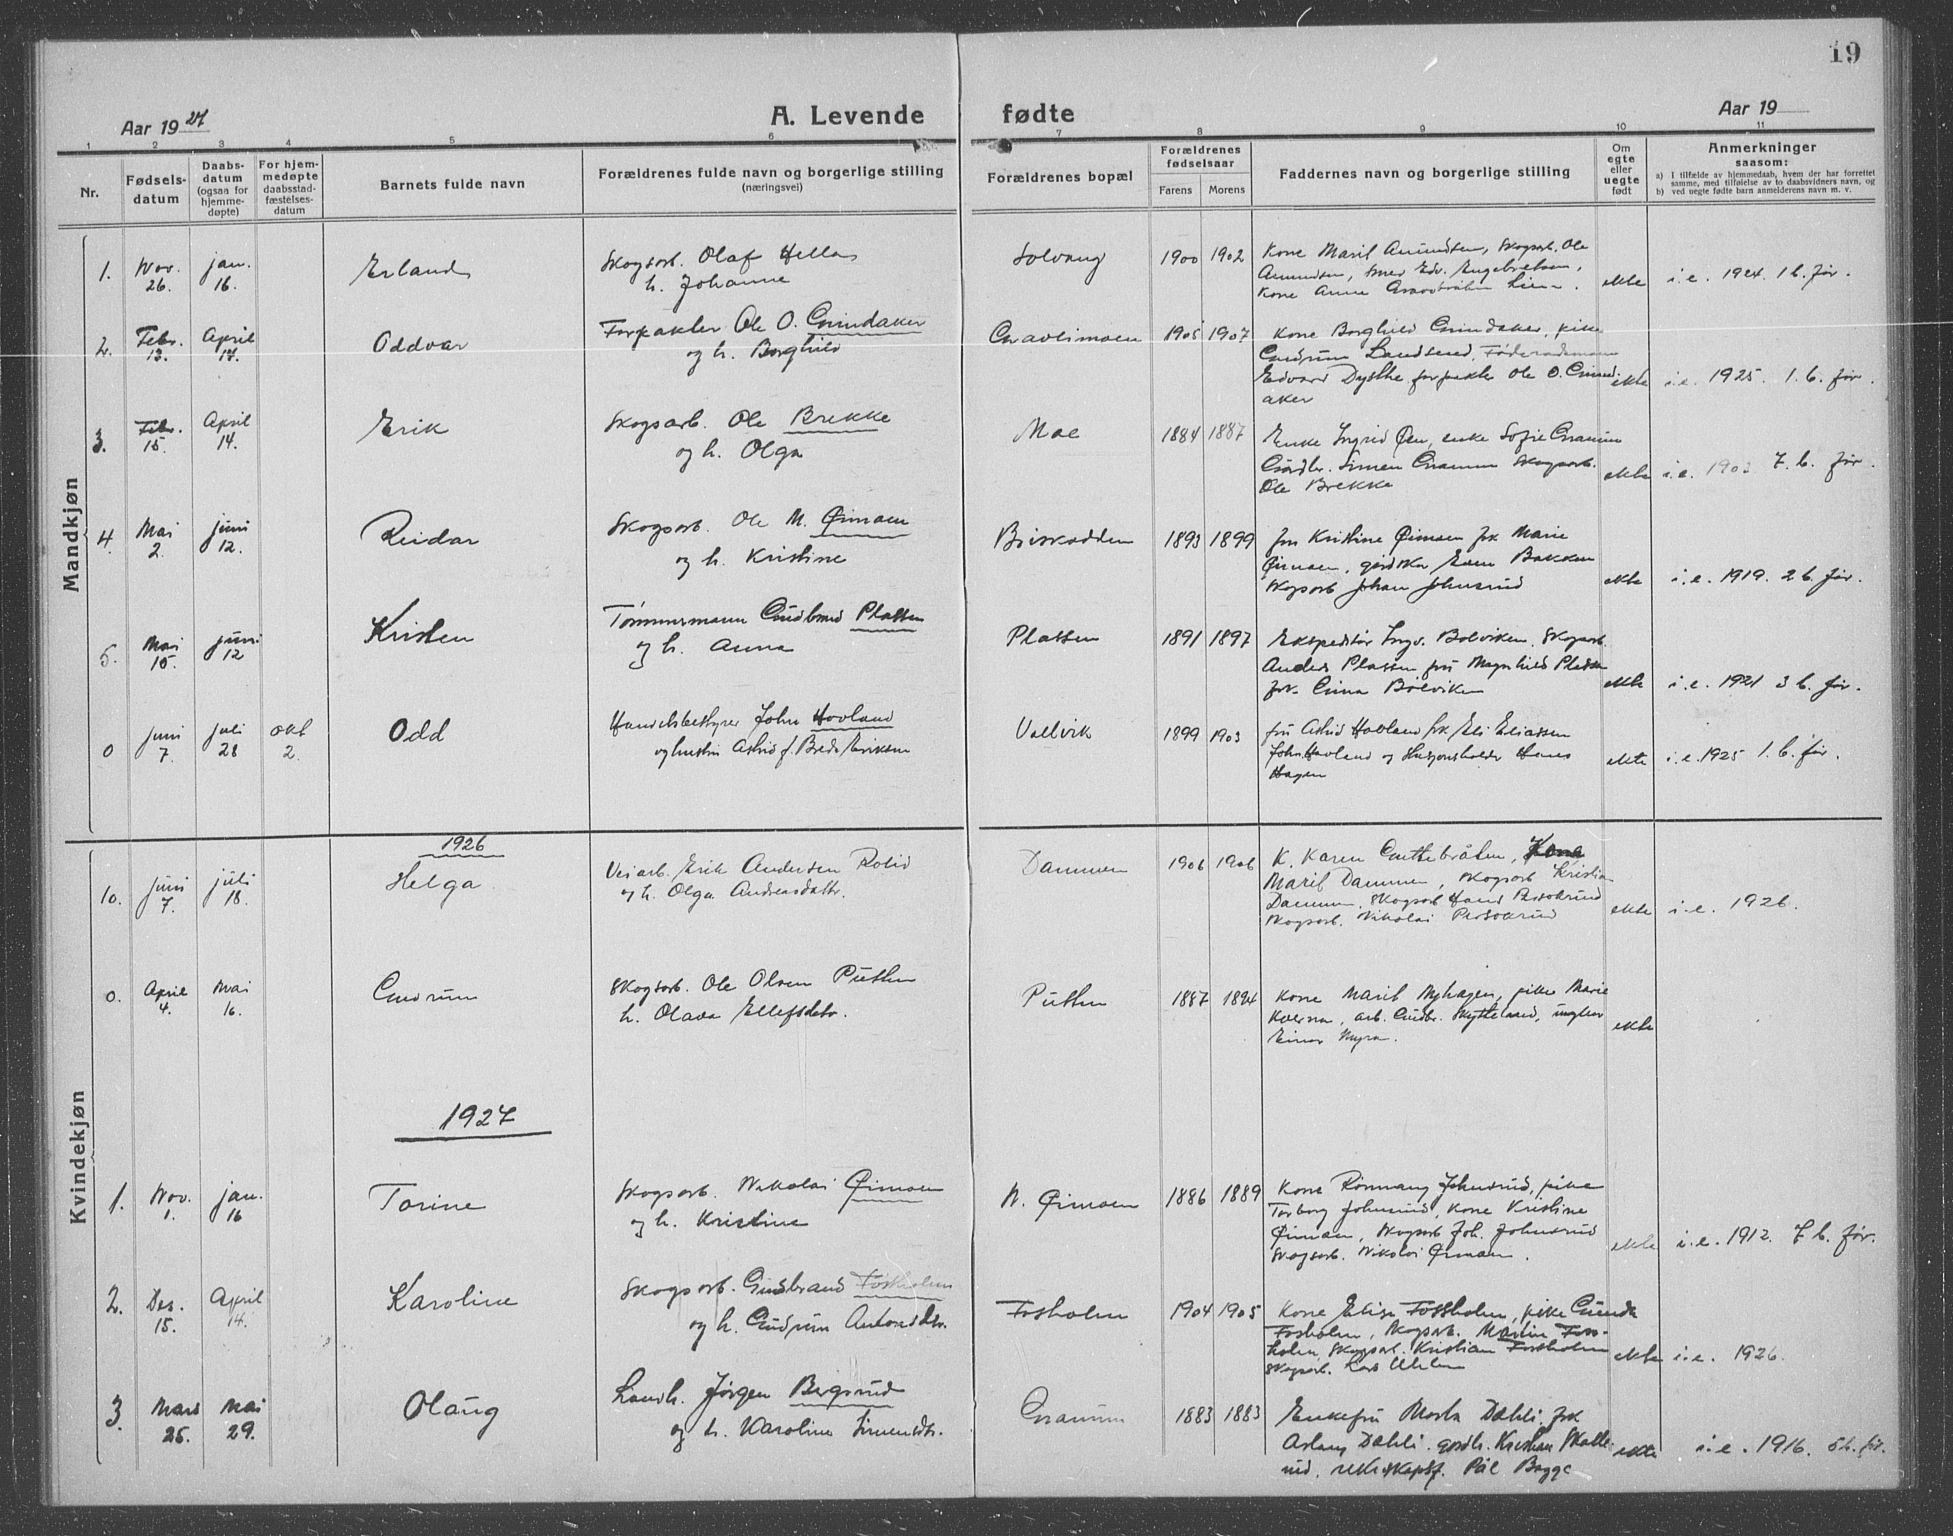 19
Aar 1927
A. Levende fødte
Aar 19
1 2 3 4 5 6 7 8 9 10 11
Nr.
Fødsels-
datum
Daabs-
datum
(ogsaa for
hjemme-
døpte)
For hjem-
medøpte
daabsstad-
fæstelses-
datum
Barnets fulde navn
Forældrenes fulde navn og borgerlige stilling
(næringsvei)
Forældrenes bopæl
Forældrenes
fødselsaar
Farens Morens
Faddernes navn og borgerlige stilling
Om
egte
eller
uegte
født
Anmerkninger
saasom:
a) I tilfælde av hjemmedaab, hvem der har forrettet
samme, med tilføielse av to daabsvidners navn, og
b) ved uegte fødte barn anmelderens navn m. v.
Mandkjøn
1. Nov. 26. jan. 16. Erland
Skogsarb. Olaf Hella
h. Johanne
Solvang 1900 1902
Kone Marit Amundsen, Skogsarb. Ole
Amundsen, smed Edv. Engebretsen,
Kone Anne Lien.
ekte i.e. 1924. 1 b. før.
2. Febr. 13. April 17. Oddvar
Forpakter Ole O. Grindaker
og h. Borghild
Gravlimoen 1905 1907
Kone Borghild Grindaker, pike
Gudrun Landsend, Føderaadsmann
Edvard Dysthe forpakter Ole O. Grind-
aker
ekte i.e. 1925. 1. b. før.
3. Febr. 15. April 14. Erik
Skogsarb. Ole Brekke
og h. Olga
Moe 1884 1887
Enke Ingrid Øen, enke Sofie Granum
Gårdbr. Simen Granum Skogsarb.
Ole Brekke
ekte i.e. 1903 7. b. før.
4. Mai 2. juni 12. Reidar
Skogsarb. Ole M. Ørmoen
og h. Kristine
Briskodden 1893 1899
fru Kristine Ørmoen frk Marie
Ørmoen, Even Bakken
skogsarb Johan Johnsrud
ekte i.e. 1919. 2 b. før.
5. Mai 15. juni 12 Kristen
Tømmermann Gudbrand Plassen
og h. Anna
Plassen 1891 1897
Ekspeditør Ingv. Bølviken, Skogsarb.
Anders Plassen fru Magnhild Plassen
frk. Bølviken
ekte i.e. 1921 3 b. før.
0 juni 7. juli 28 okt 2. Odd
Handelsbestyrer John Hovland
og hustru Astrid f. Brede Eriksen
Vallvik 1899 1903
fru Astrid Hovland frk Eli Eliassen
John Hovland og Hans
Hagen
ekte i.e. 1925 1. b. før.
Kvindekjøn
1926
10. juni 7. juli 18. Helga
Veiarb. Erik Andersen Rolid
og h. Olga Andreasdattr.
Dammen 1906 1906
K. Karen Guttebråten,
Marit Dammen, skogsarb Kristian
Dammen, Skogsarb Hans
Skogsarb. Nikolai
ekte i.e. 1926.
0. April 4. Mai 16. Gudrun
Skogsarb. Ole Olsen Putten
h. Olava Ellefsdtr.
Putten 1887 1894
Kone Marit Myhagen, pike Marie
Kverna, arb. Gudbr. ungkar
Einar Myra.
ekte
1927
1. Nov. 1. jan. 16 Torine
Skogsarb. Nikolai Ørmoen
og h. Kristine
N. Ørmoen 1886 1889
Kone Rønnaug Johnsrud, pike
Torborg Johnsrud, Kone Kristine
Ørmoen, skogsarb Joh. Johnsrud
Skogsarb. Nikolai Ørmoen.
ekte i.e. 1912. 7 b. før.
2. Des. 15. April 14. Karoline
Skogsarb. Gudbrand Fosholm
og h. Gudrun Antonsdtr.
Fosholm 1904 1905
Kone Elise Fossholm, pike Gunda
Fosholm, skogsarb. Martin Fos-
holm, Skogsarb. Kristian Fossholm
Skogsarb. Lars Uhlen
ekte i.e. 1926.
3. Mars 25. Mai 29. Olaug
Landh. Jørgen Bergsrud
og h. Karoline Simensdtr.
Granum 1883 1883
Enkefru Marta Dahli, frk
Aslaug Dahli. gårdbr. Kristian Skalle-
rud, Pål Bagge
ekte i.e. 1916. 5 b. før.